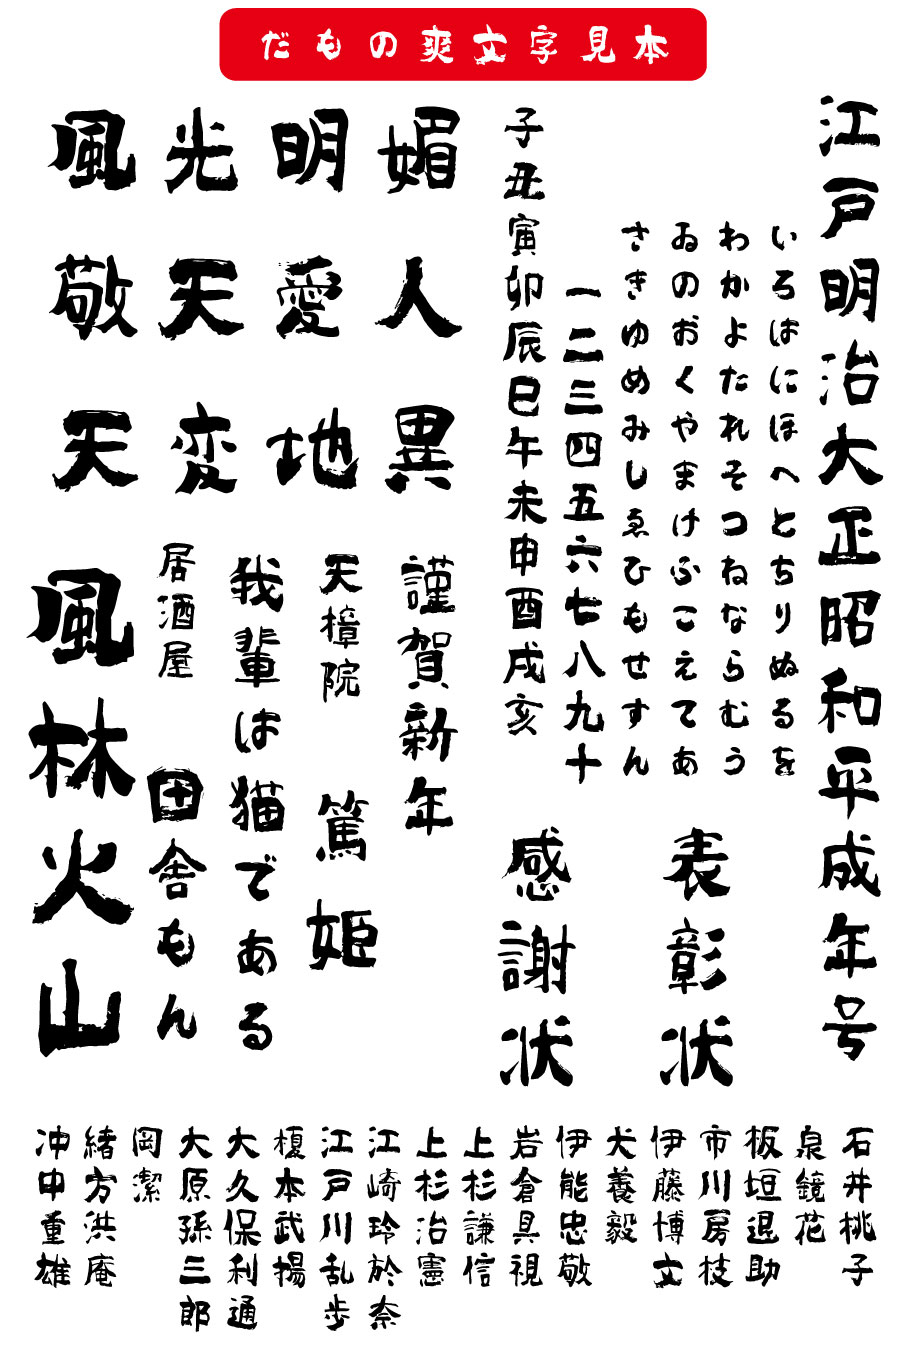 だもの爽文字見本
江戸明治大正昭和平成年号
いろはにほへとちりぬるを
わかよたれそつねならむう
ゐのおくやまけふこえてあ
さきゆめみしゑひもせすん
一二三四五六七八九十
子丑寅卯辰巳午未申酉戌亥
表彰状
感謝状
風光明媚
敬天愛人
天変地異
謹賀新年
天樟院
篤姫
我輩は猫である
居酒屋
田舎もん
風林火山
石井桃子
泉鏡花
板垣退助
市川房枝
伊藤博文
犬養毅
伊能忠敬
岩倉具視
上杉謙信
上杉治憲
江崎玲於奈
江戸川乱歩
榎本武揚
大久保利通
大原孫三郎
岡潔
緒方洪庵
冲中重雄